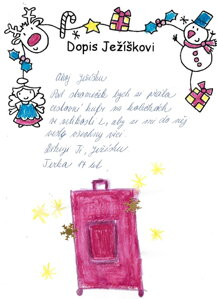 Dopis Ježíškovi
Ahoj Ježíšku
Pod stromeček bych si přála
cestovní kufr na kolečkách
ve velikosti L, aby se mi do něj
vešly všechny věci
Děkuji Ti, Ježíšku
Terka 17 let